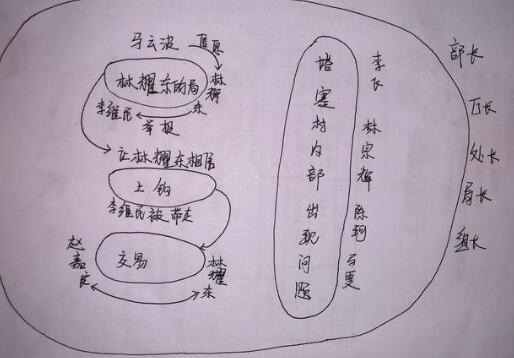 马云波
林耀东
林耀东的局
李维民
举报
让林耀东相信
上钩
李维民被带走
交易
赵嘉良
林耀东
塔寨村内部出现问题
李飞
林宗辉
陈珂
马雯
部长
厅长
处长
局长
组长